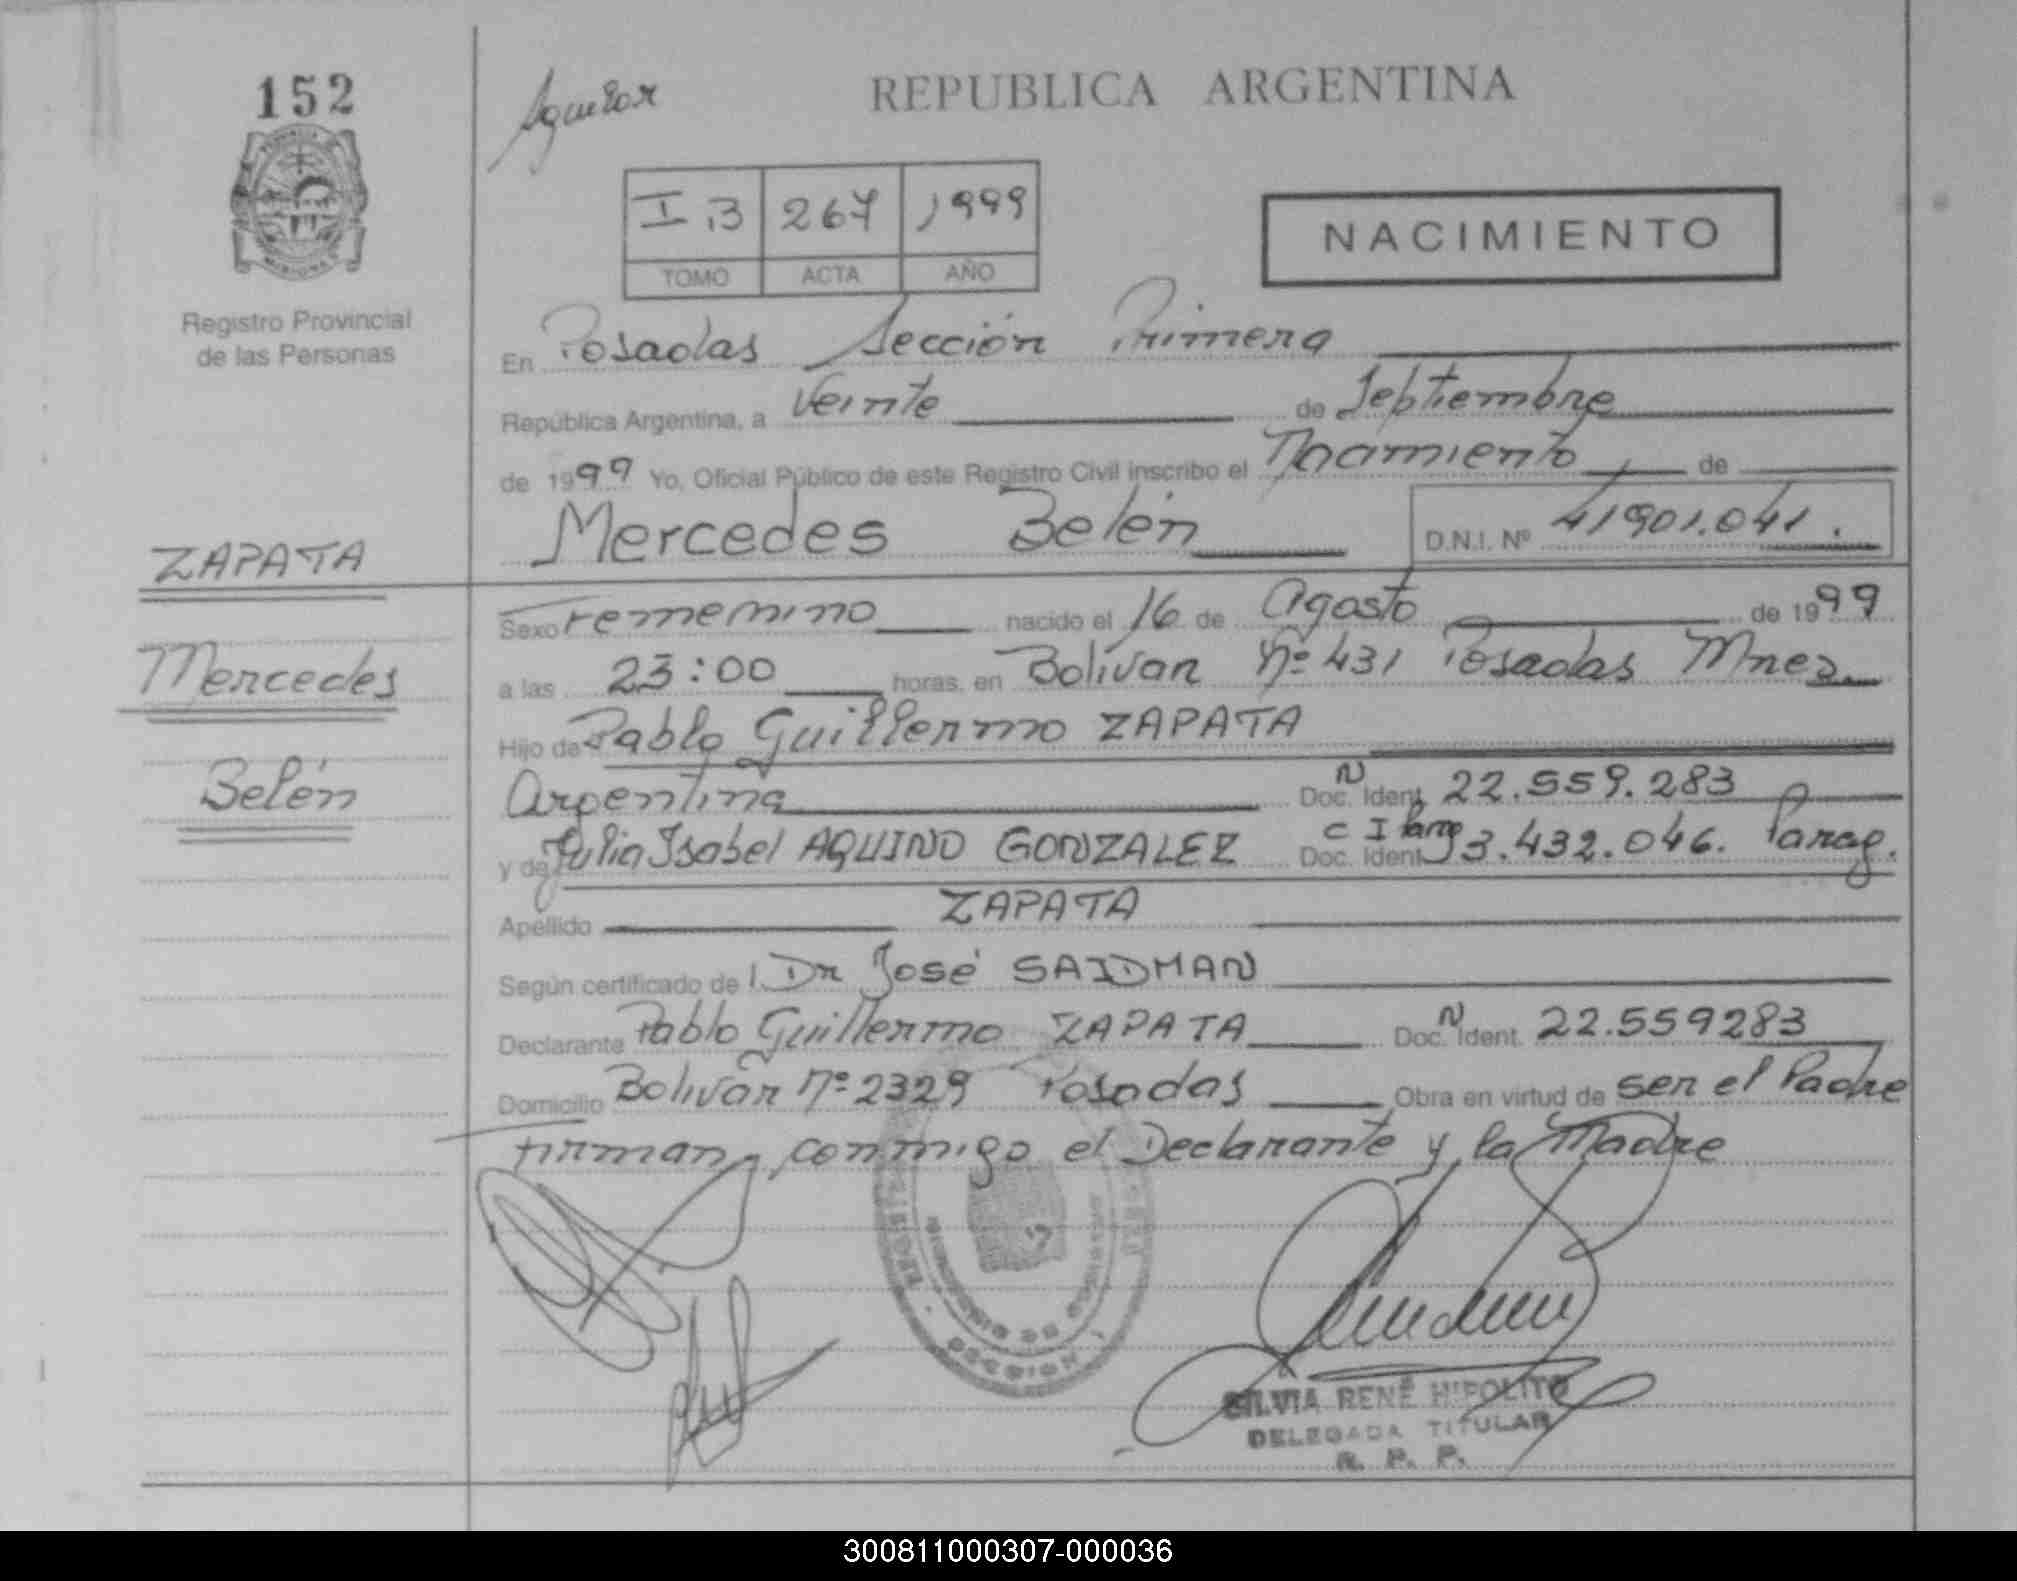 152
Registro Provincial
de las Personas
ZAPATA
Mercedes
Belén
REPUBLICA ARGENTINA
I B 267 1999
TOMO ACTA AÑO
NACIMIENTO
En Posadas Sección Primera
República Argentina, a Veinte de Septiembre
de 1999 Yo, Oficial Público de este Registro Civil inscribo el Nacimiento de
Mercedes Belén D.N.I. Nº 41901.041.
Sexo Fememino nacido el 16 de Agosto de 1999
a las 23:00 horas, en Bolívar Nº 431 Posadas Mnes.
Hijo de Pablo Guillermo ZAPATA
Argentina Doc. N Ident. 22.559.283
y de Julia Isabel AQUINO GONZALEZ Doc. Ident. C I 3.432.046. Parag.
Apellido ZAPATA
Según certificado de Dr José SAIDMAN
Declarante Pablo Guillermo ZAPATA Doc. N Ident. 22.559283
Domicilio Bolívar Nº 2329 Posadas Obra en virtud de ser el Padre
firman conmigo el Declarante y la Madre
SILVIA RENÉ HIPOLITO
DELEGADA TITULAR
R. P. P.
300811000307-000036